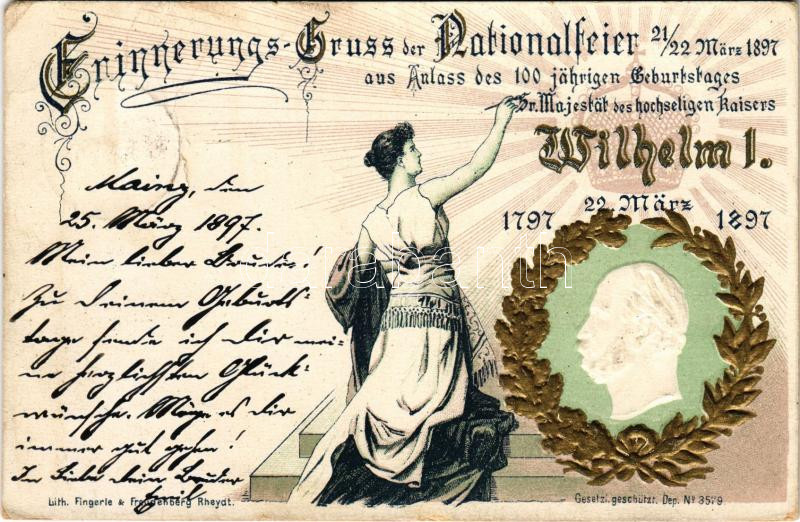 Erinnerungs-Gruss der Nationalfeier 21/22 März 1897
aus Anlass des 100 jährigen Geburtstages
Sr. Majestät des hochseligen Kaisers
Wilhelm I.
22. März
1797 1897
Mainz, den
25. März 1897.
Mein lieber Bruder!
Zu deinem Geburts-
tage sende ich Dir mei-
ne herzlichsten Glück-
wünsche. Möge es dir
immer gut gehen!
In Liebe dein Bruder
Lith. Fingerle & Freudenberg Rheydt.
Gesetzl. geschützt. Dep. No 3579